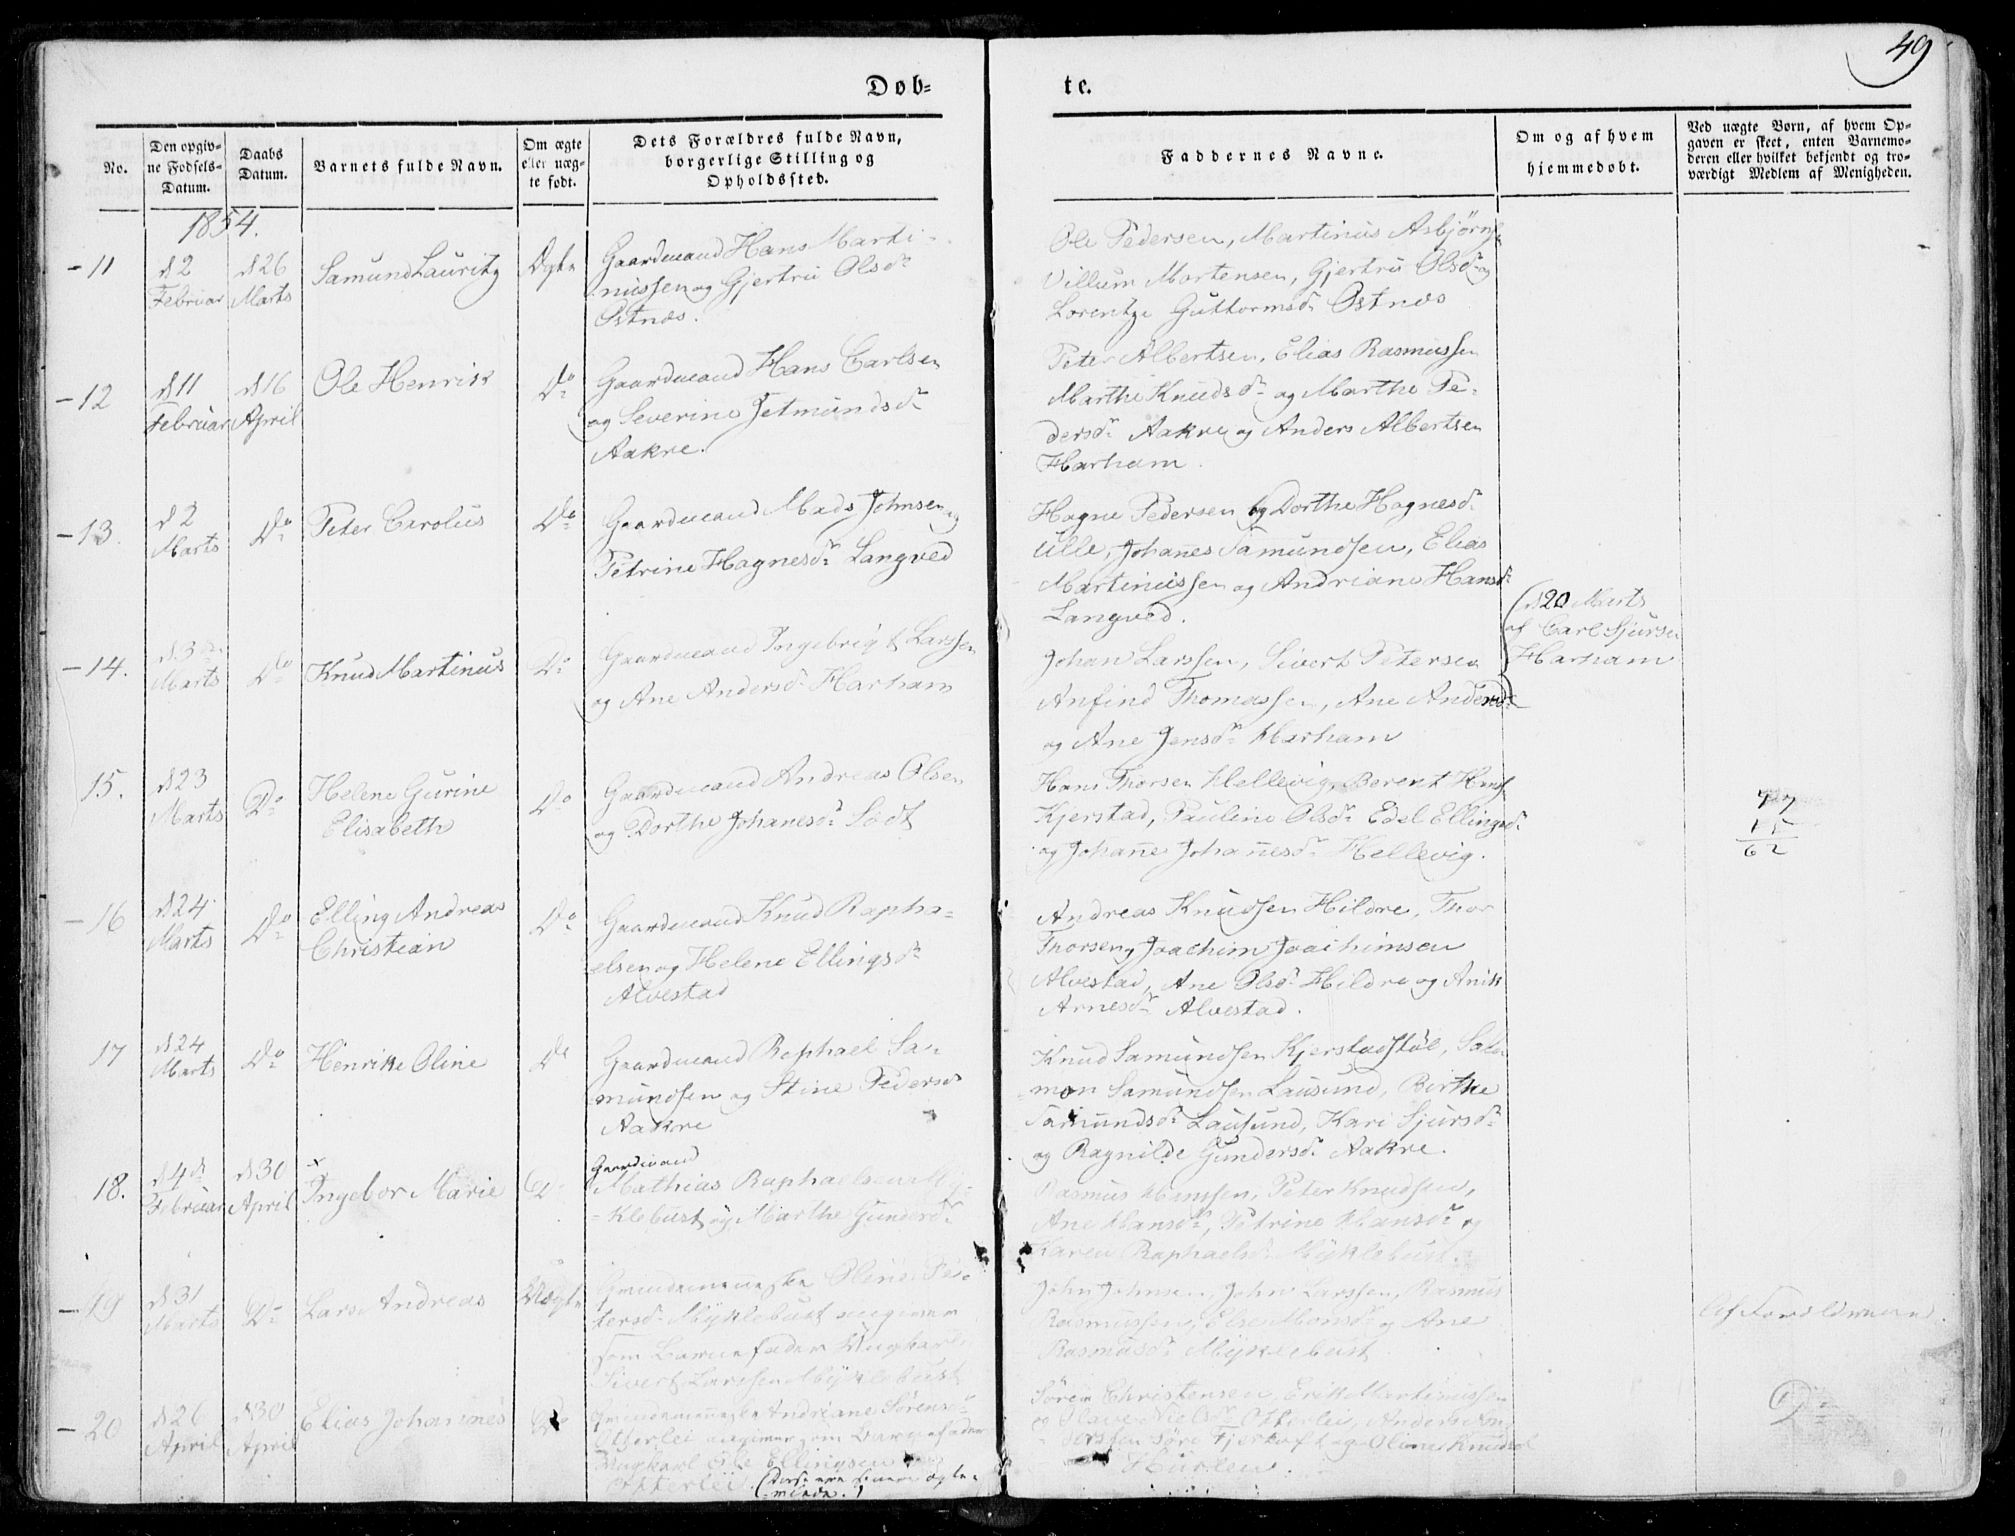 49
Døb=
te.
No.
Den opgiv=
ne Fødsels=
Datum.
Daabs
Datum.
Barnets fulde Navn.
Om ægte
eller uæg=
te født.
Dets Forældres fulde Navn,
borgerlige Stilling og
Opholdssted.
Faddernes Navne.
Om og af hvem
hjemmedøbt.
Ved uægte Børn, af hvem Op=
gaven er skeet, enten Barnemo=
deren eller hvilket bekjendt og tro=
værdigt Medlem af Menigheden.
1854.
11
d 2
Februar
d 26
Marts
Samund Lauritz
Ægte
Gaardmand Hans Marti-
nussen og Gjertru Olsdr
Østnæs.
Ole Pedersen, Martinus Asbjørns.
Villum Mortensen, Gjertru Olsdr og
Lorentze Guttormsdr Østnæs
12
d 11
Februar
d 16
April
Ole Henrik
Do
Gaardmand Hans Carlsen
og Severine Jetmundsdr
Aakre.
Peter Albertsen, Elias Rasmussen
Marthe Knudsdr og Marthe Pe-
dersdr Aakre og Anders Albertsen
Harham.
13.
d 2
Marts
Do
Peter Carolus
Do
Gaardmand Mads Johnsen og
Petrine Hagnesdr Langved
Hagne Pedersen og Dorthe Hagnesdr
Ulle, Johannes Samundsen, Elias
Martinussen og Andriane Hansdr
Langved.
14.
d 3
Marts
Do
Knud Martinus
Do
Gaardmand Ingebrigt Larssen
og Ane Andersdr Harham
Johan Larssen, Sivert Petersen
Anfind Thomassen, Ane Andersdr
og Ane Jensdr Harham
(d 20 Marts
af Carl Sjursen
Harham
15.
d 23
Marts
Do
Helene Gurine
Elisabeth
Do
Gaardmand Andreas Olsen
og Dorthe Johanesdr Sødt
Hans Thorsen Hellevig, Berent Hans.
Kjerstad, Pauline Olsdr Edel Ellingsdr
og Johanne Johannesdr Hellevig.
77
15
62
16
d 24
Marts
Do
Elling Andreas
Christian
Do
Gaardmand Knud Rapha-
elsen og Helene Ellingsdr
Alvestad
Andreas Knudsen Hildre, Thor
Thorsen og Joachim Joachimsen
Alvestad, Ane Olsdr Hildre og Anik
Arnesdr Alvestad.
17
d 24
Marts
Do
Henrike Oline
Do
Gaardmand Raphael Sa-
mundsen og Stine Pedersdr
Aakre
Knud Samundsen Kjerstadstøl, Salo-
mon Samundsen Lausund, Birthe
Samundsdr Lausund, Kari Sjursdr
og Ragnilde Gundersdr Aakre.
18.
d 4de
Februar
d 30
April
Ingebor Marie
Do
Gaardmand
Mathias Raphaelsen My-
klebust og Marthe Gundersdr
Rasmus Hanssen, Peter Knudsen,
Ane Hansdr, Petrine Hansdr og
Karen Raphaelsdr Myklebust.
19
d 31
Marts
Do
Lars Andreas
Uægte
Qvindemenneske Oline Pe-
tersdr Myklebust angiver
som Barnefader Ungkarl
Sivert Larssen Myklebust
John Johnsen, John Larssen, Rasmus
Rasmussen, Else Monsdr og Ane
Rasmusdr Myklebust
Af Forældrene.
20
d 26
April
d 30
April
Elias Johannes
Do
Qvindemenneske Andriane Sørensdr
Otterlei angiver som Barnefader
Ungkarl Ole Ellingsen
Otterlei
Søren Christensen, Erik Martinussen
og Nielsdr Otterlei, Anders
og Oline Knudsdr
Do